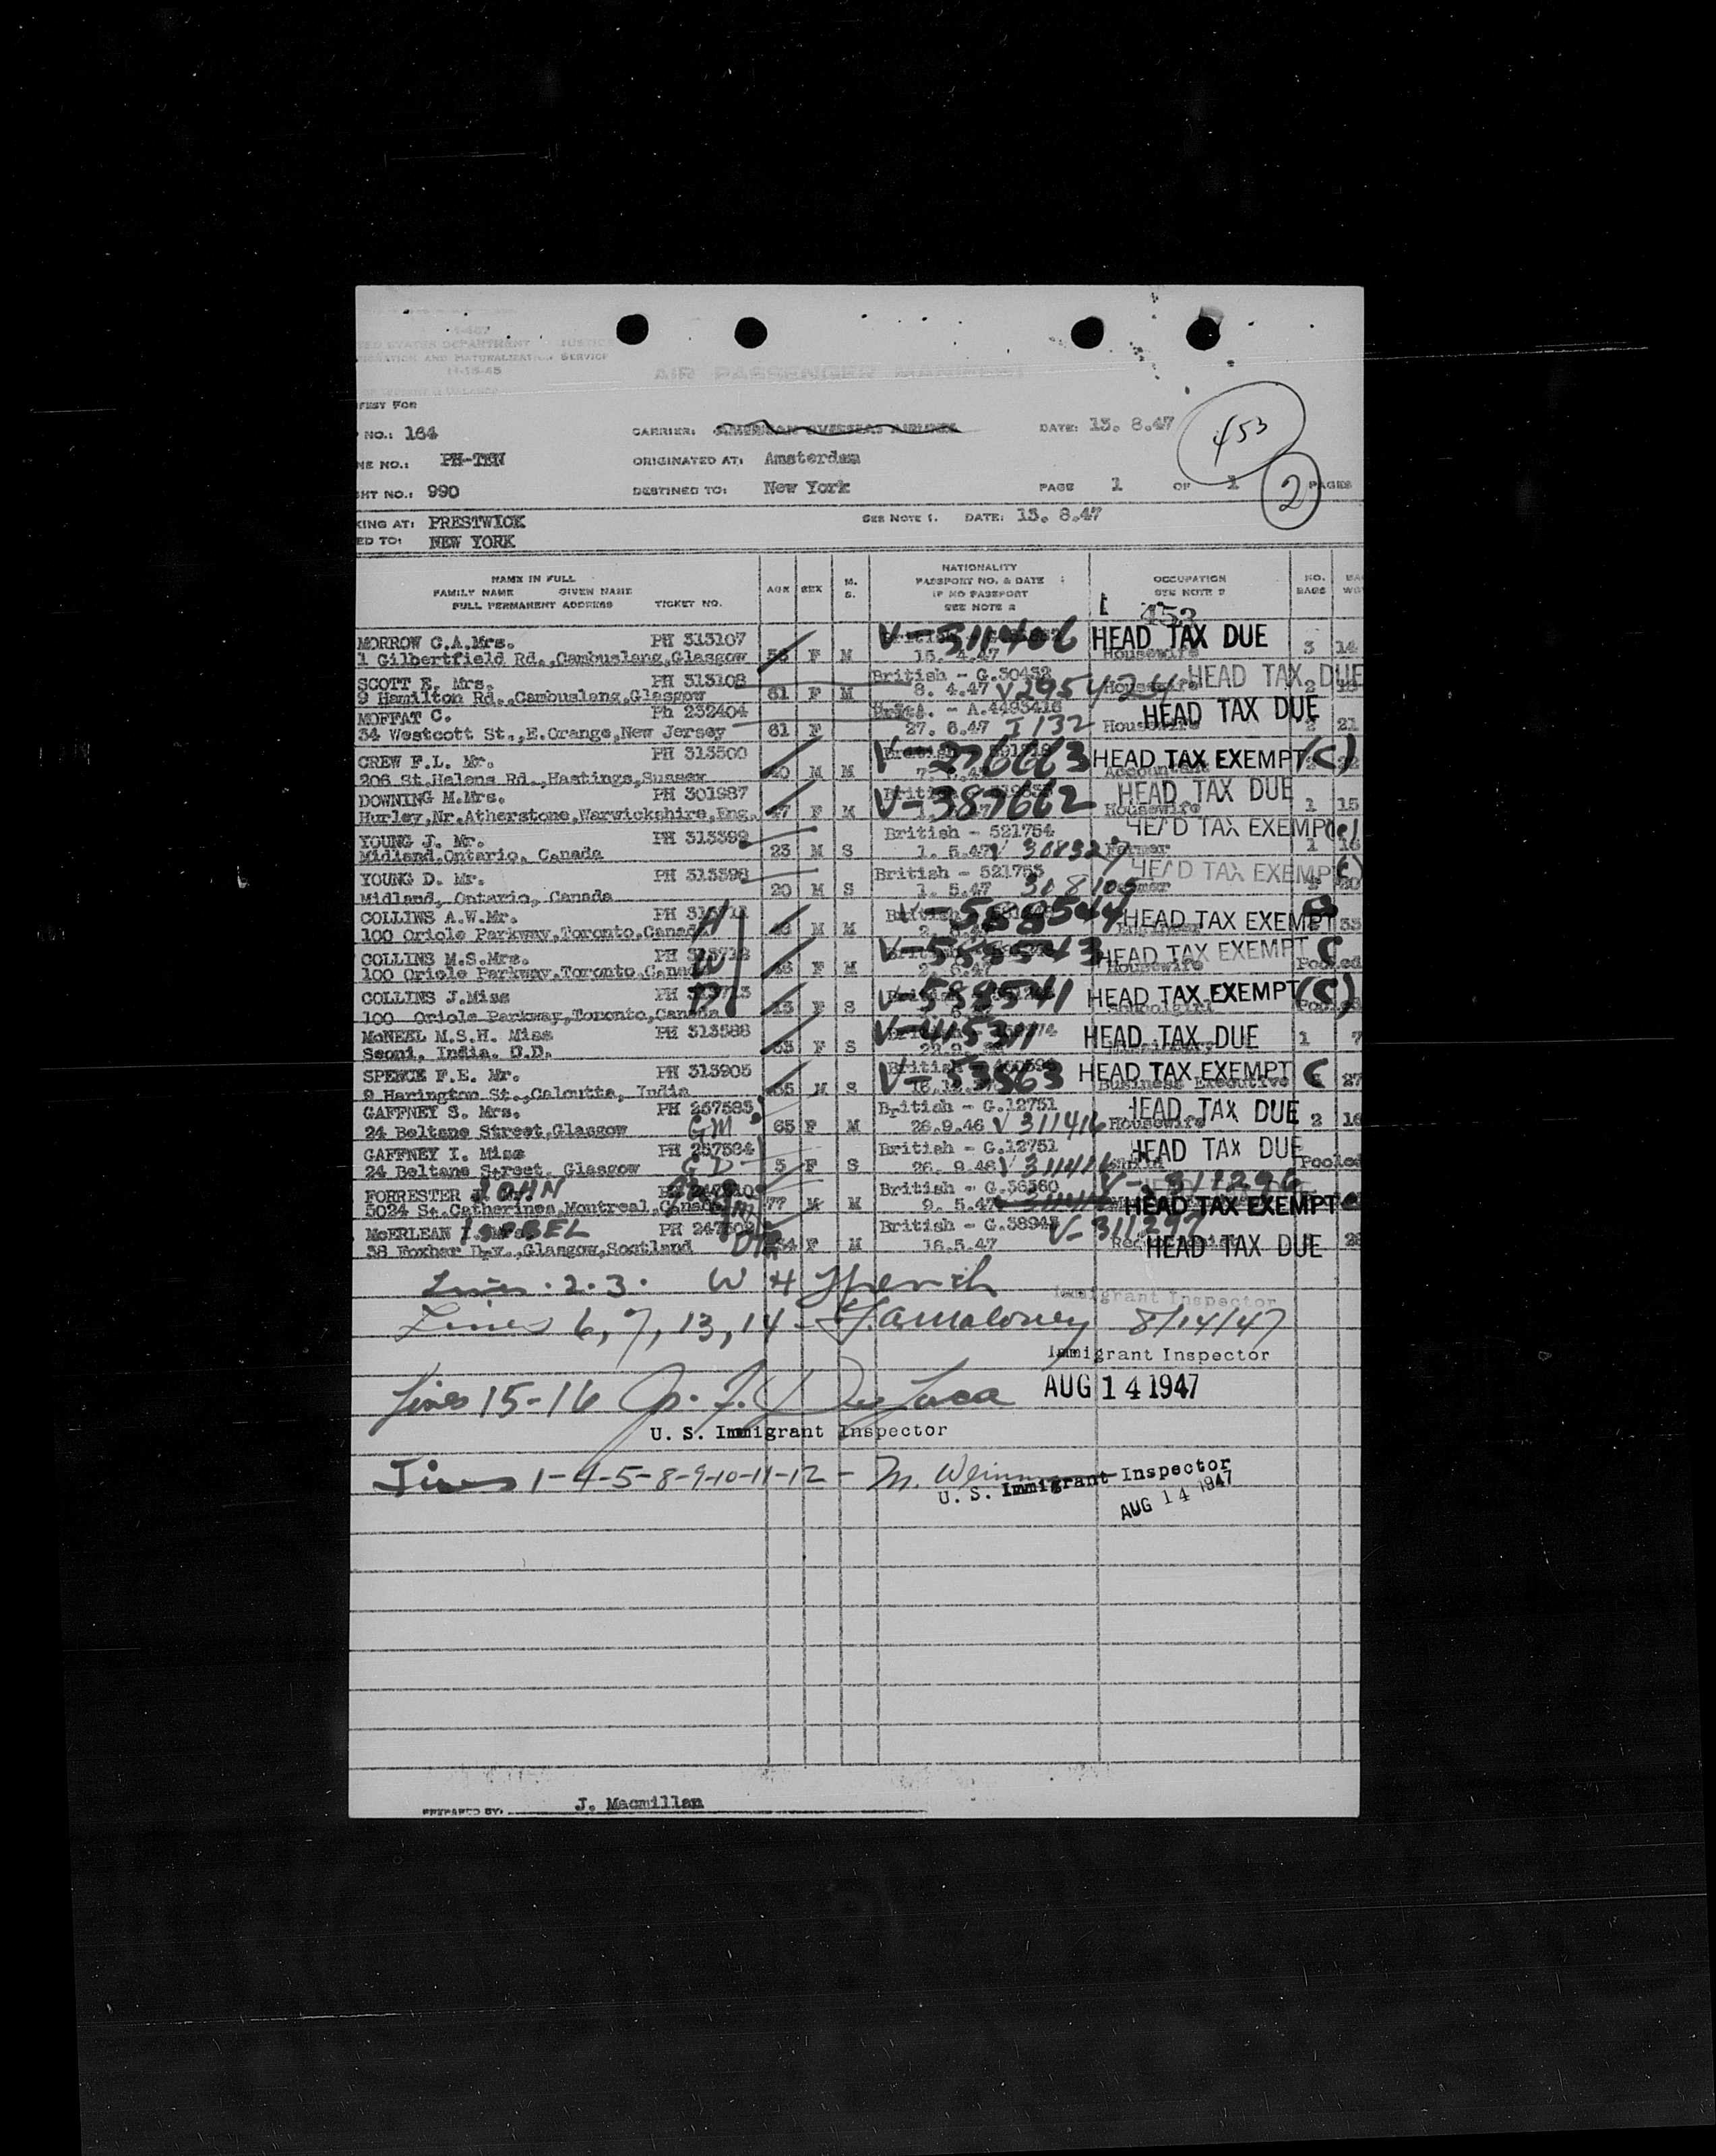 TED STATES DEPARTMENT JUSTICE
AND NATURALIZATION SERVICE
11-15-45
AIR PASSENGER MANIFEST
FEST FOR
NO.: 164 CARRIER: AMERICAN OVERSEAS AIRLINES DATE: 13. 8.47 453
NE NO.: PH-TEN ORIGINATED AT: Amsterdam
HT NO.: 990 DESTINED TO: New York PAGE 1 OF 1 2 PAGES
KING AT: PRESTWICK SEE NOTE 1. DATE: 13. 8.47
ED TO: NEW YORK
NAME IN FULL
FAMILY NAME GIVEN NAME
FULL PERMANENT ADDRESS TICKET NO. AGE SEX M. S. NATIONALITY PASSPORT NO. & DATE IF NO PASSPORT SEE NOTE 2 OCCUPATION SEE NOTE 2 NO. BAGS
453
MORROW C.A.Mrs. PH 313107 V-311406 HEAD TAX DUE
1 Gilbertfield Rd.,Cambuslang,Glasgow F M 15. 4.47 Housewife 3 14
SCOTT E. Mrs. PH 313108 British - G.30432 HEAD TAX DUE
9 Hamilton Rd.,Cambuslang,Glasgow 61 F M 8. 4.47 V295424 Housewife 2
MOFFAT C. Ph 232404 Brit. - A.4493416 HEAD TAX DUE
34 Westcott St.,E.Orange,New Jersey 61 F 27. 6.47 I 132 Housewife 2 21
CREW F.L. Mr. PH 313500 V-276663 HEAD TAX EXEMPT (C)
206 St.Helens Rd.,Hastings,Sussex M M Accountant
DOWNING M.Mrs. PH 301987 V-387662 HEAD TAX DUE
Hurley,Nr.Atherstone,Warwickshire,Eng. 47 F M Housewife 1 15
YOUNG J. Mr. PH 313399 British - 521754 HEAD TAX EXEMPT (c)
Midland,Ontario, Canada 23 M S 1. 5.47 V 308327 Farmer 1 16
YOUNG D. Mr. PH 313398 British - 521753 HEAD TAX EXEMPT C)
Midland, Ontario, Canada 20 M S 1. 5.47 308105 Farmer
COLLINS A.W.Mr. H V-588544 HEAD TAX EXEMPT
100 Oriole Parkway,Toronto,Canada M M 33
COLLINS M.S.Mrs. W V-588543 HEAD TAX EXEMPT C
100 Oriole Parkway,Toronto,Canada F M Housewife Pooled
COLLINS J.Miss D V-588541 HEAD TAX EXEMPT (C)
100 Oriole Parkway,Toronto,Canada 13 F S Schoolgirl
McNEEL M.S.H. Miss PH 313588 V-415311 HEAD TAX DUE
Seoni, India. C.D. 63 F S 1 7
SPENCE F.E. Mr. PH 313905 V-53363 HEAD TAX EXEMPT C
9 Harington St.,Calcutta, India 55 M S Business Executive 27
GAFFNEY S. Mrs. PH 257585 British - G.12751 HEAD TAX DUE
24 Beltane Street,Glasgow GM 65 F M 26.9.46 V 311416 Housewife 2 16
GAFFNEY I. Miss PH 257584 British - G.12751 HEAD TAX DUE
24 Beltane Street, Glasgow GD 5 F S 26. 9.46 V 311416 Child Pooled
FORRESTER JOHN British - G.36580 V-311296
5024 St.Catherines,Montreal,Canada 77 M M 9. 5.47 HEAD TAX EXEMPT
McERLEAN ISABEL British - G.38943 V-311297
38 Foxbar Drv.,Glasgow,Scotland F M 16.5.47 HEAD TAX DUE
Lines 2.3. W H
Immigrant Inspector
Lines 6, 7, 13, 14 - F.A. Maloney 8/14/47
Immigrant Inspector
Lines 15-16 J. F. De Luca AUG 14 1947
U. S. Immigrant Inspector
Lines 1-4-5-8-9-10-11-12 - M.
U. S. Immigrant Inspector
AUG 14 1947
PREPARED BY: J. Macmillan